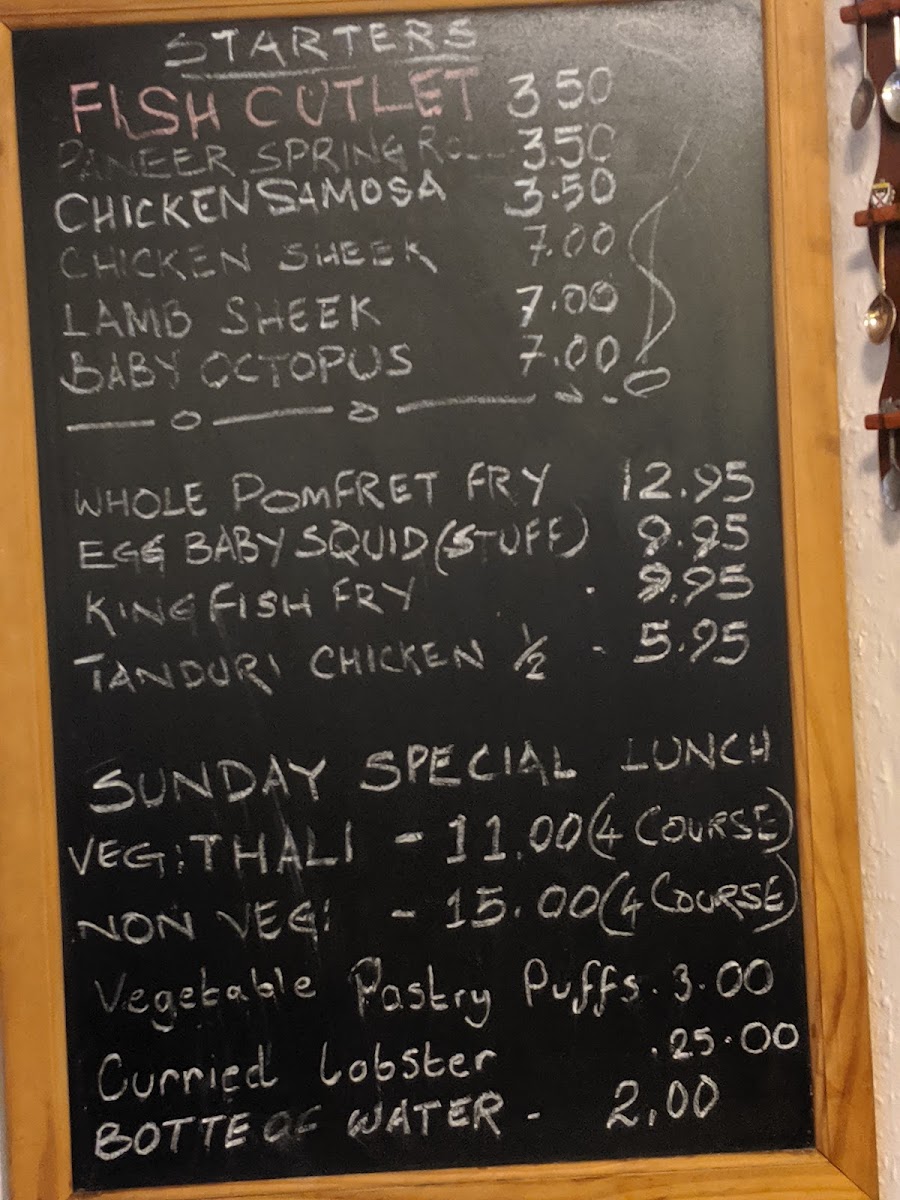 STARTERS
FISH CUTLET 3.50
PANEER SPRING ROLL 3.50
CHICKEN SAMOSA 3.50
CHICKEN SHEEK 7.00
LAMB SHEEK 7.00
BABY OCTOPUS 7.00
WHOLE POMFRET FRY 12.95
EGG BABY SQUID (STUFF) 9.95
KING FISH FRY . 9.95
TANDURI CHICKEN 1/2 - 5.95
SUNDAY SPECIAL LUNCH
VEG: THALI - 11.00 (4 COURSE)
NON VEG: - 15.00 (4 COURSE)
Vegetable Pastry Puffs. 3.00
Curried lobster .25.00
BOTTE OF WATER - 2.00